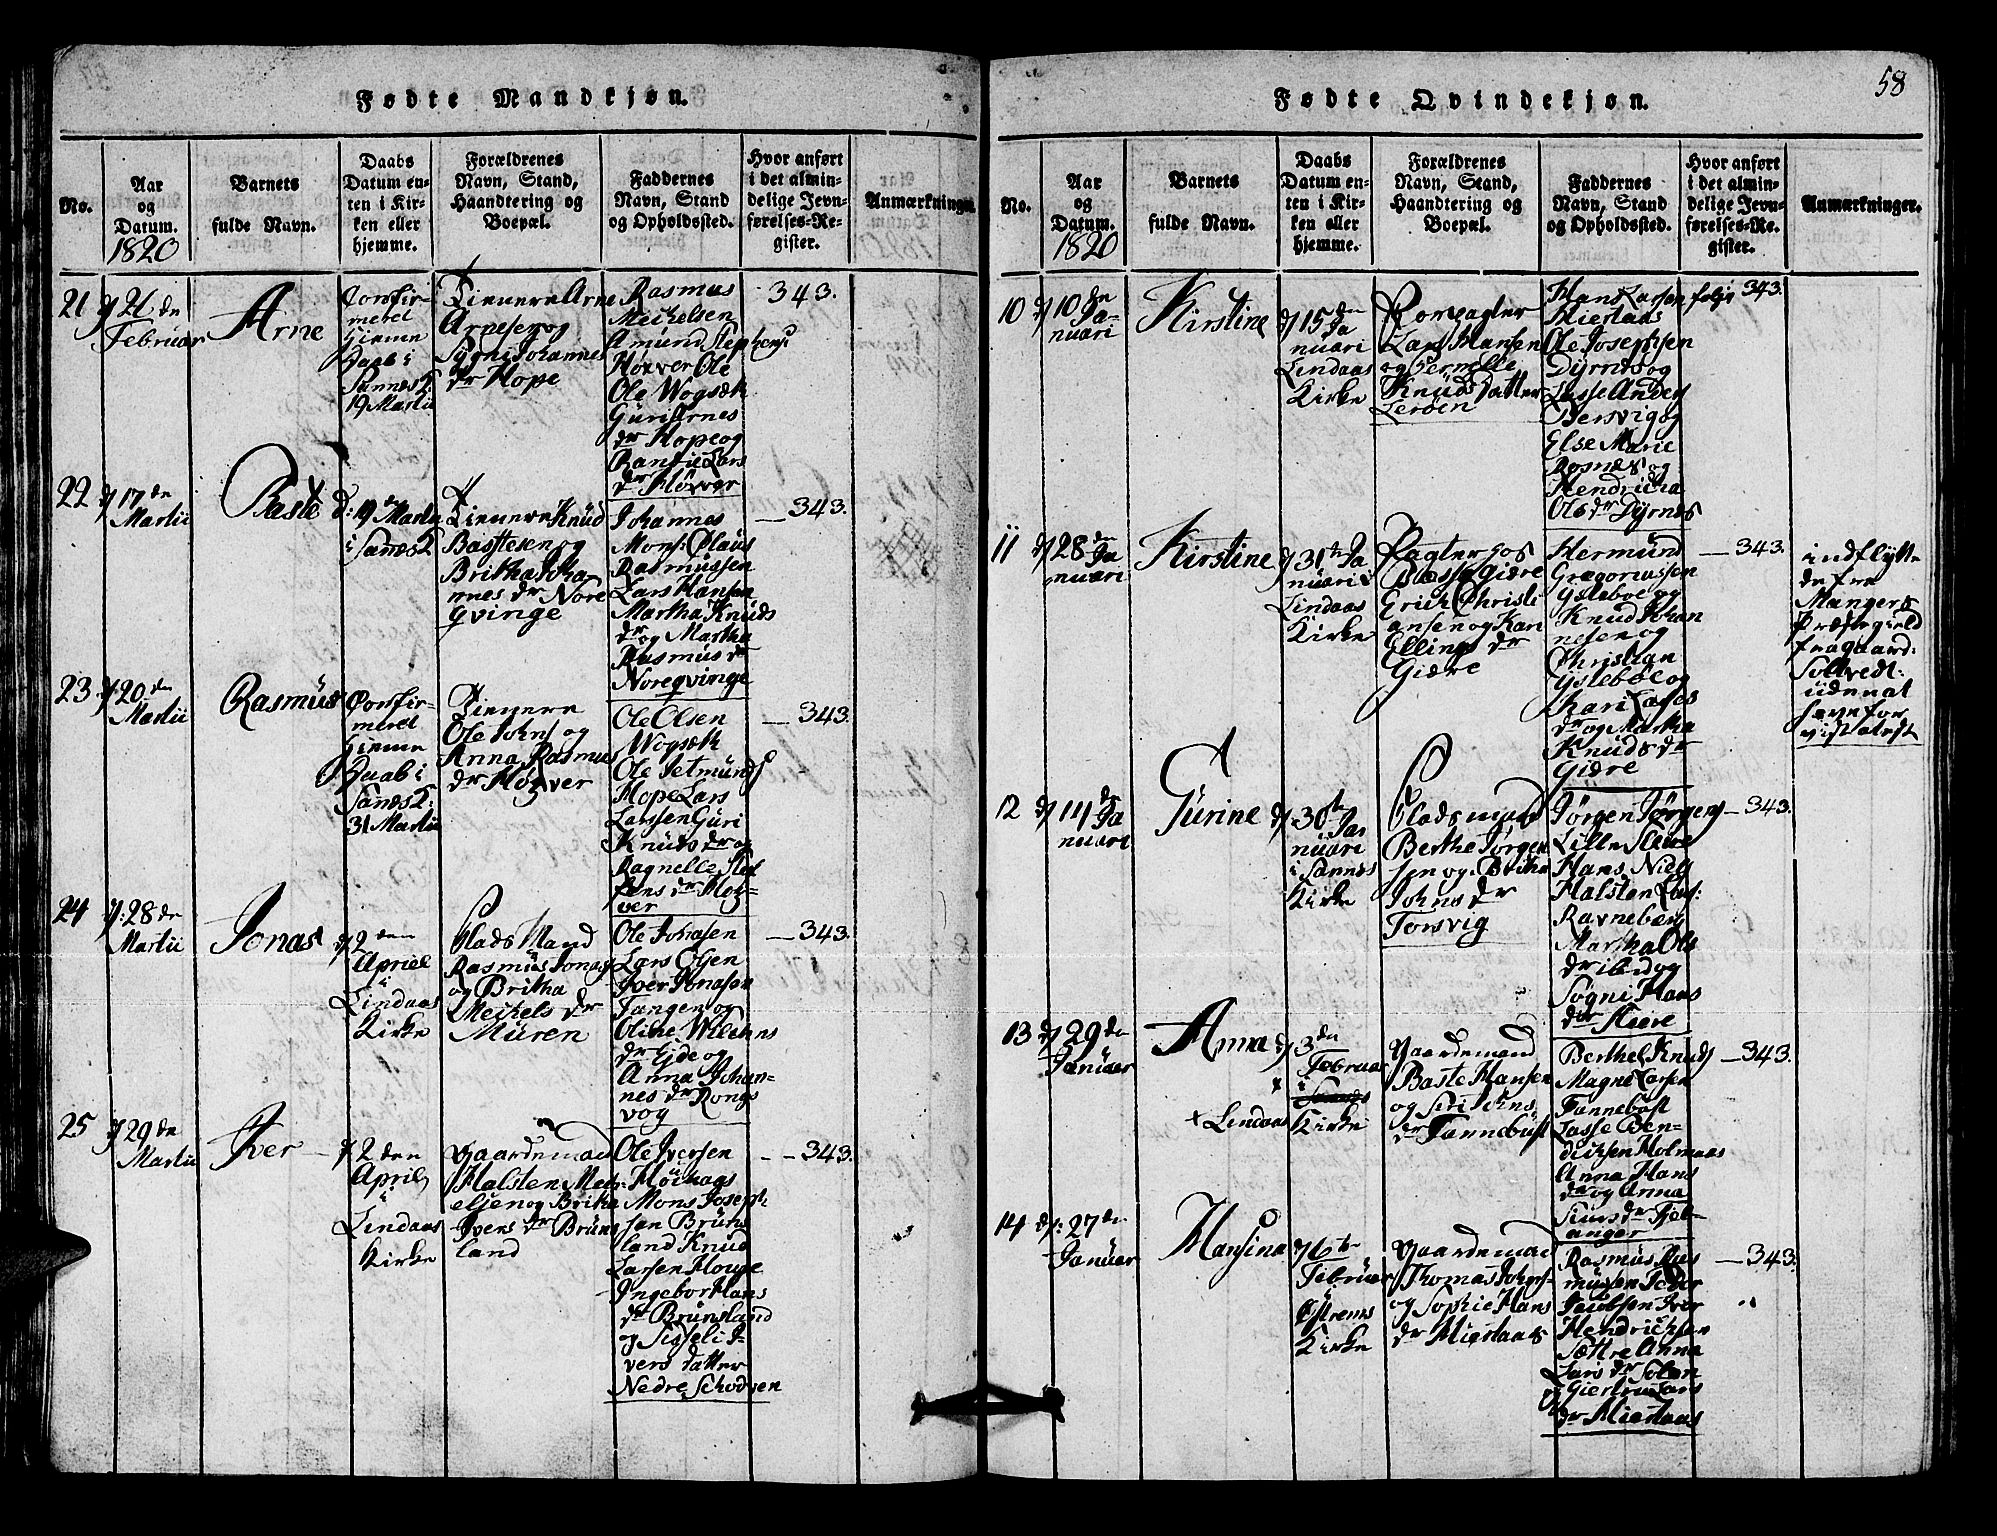 Fødte Mandkjøn.
No.
Aar
og
Datum.
1820
Barnets
fulde Navn.
Daabs
Datum en-
ten i Kir-
ken eller
hjemme.
Forældrenes
Navn, Stand,
Haandtering og
Boepæl.
Faddernes
Navn, Stand
og Opholdssted.
Hvor anført
i det almin-
delige Jevn-
førelses-Re-
gister.
Anmærkninge
21
26 de
Februar
Arne
Confir-
meret
Hiemme
Daab i
Sannes K
19 Martii
Arne
Arnesen og
Sygni Johannes
dr Hope
Rasmus
Meikelsen
Amund Stephens
Høyver Ole
Ole Wogsæk
Guri Arnes
dr Hope og
Lars
dr Høyver
343.
22
17 de
Martii
Baste
d: 19 de Martii
i Sanes K
Knud
Bastesen og
Britha Joha
nnes dr Nore
qvinge
Johannes
Mons: Olaus
Rasmussen
Lars Hansen
Martha Knuds
dr og Martha
Rasmus dr
Noreqvinge
343.
23
20 den
Martii
Rasmus
Confir-
meret
Hiemme
Daab i
Sanes K:
31 Martii
Ole Johns og
Anna Rasmus
dr Høyver
Ole Olsen
Wogsæk
Ole Jetmunds
Hope Lars
Larssen Guri
Knuds dr og
Ragnelle Stef
fens dr Høy-
ver
343.
24
28 de
Martii
Jonas
2 den
Apriel
i
Lindaas
Kirke
Plads Mand
Rasmus Jonas
og Britha
Meikels dr
Muren
Ole Johasen
Lars Olsen
Iver Jonasen
Tangen og
Oline Willums
dr Eide og
Anna Johan-
nes dr Rongs
vog
343.
25
29 de
Martii
Iver
2 den
April
i
Lindaas
Kirke
Gaardemand
Halsten
elsen og Brithe
Ivers dr Bruns
land
Ole Iversen
Høinags
Mons Joseph
sen Bruns
land Knud
Larsen Houge
Ingebor Hans
dr Brunsland
og Sisseli I-
vers datter
Nedre Schodven
343.
58
Fødte Qvindekjøn.
No.
Aar
og
Datum.
1820
Barnets
fulde Navn.
Daabs
Datum en-
ten i Kir-
ken eller
hjemme.
Forældrenes
Navn, Stand,
Haandtering og
Boepæl.
Faddernes
Navn, Stand
og Opholdssted.
Hvor anført
i det almin-
delige Jevn-
førelses-Re-
gister.
Anmærkninger.
10
10 de
Ja-
nuari
Kirstine
15 den
Ja
nuari
Lindaas
Kirke
Forpagter
Lars Hansen
og Pernelle
Knuds datter
Lerøen
Hans Larsen
Miestads
Ole Josephsen
Dyrnes og
Lasse Anders
Bersvig og
Else Marie
Rosnes og
Hendricha
Ols dr Dyrnes
folje 343.
11
28 de
Ja
nuari
Kirstine
31 te Ja
nuari i
Lindaas
Kirke
Pagter hos
Basse Giære
Erich Christi
ansen og Kari
Ellings dr
Giære
Hermund
Gregoriussen
Ysteboe og
Knud Johan
nesen og
Christian
Ysteboe og
Kari Lases
dr og Martha
Knuds dr
Giære
343.
indflytte
de fra
Mangers
Præstegield
fra gaard:
Soltvedt:
uden at
have for
vist atest
12
11 de
Ja
nuari
Gurine
30 te Ja
nuari
i Sannes
Kirke
Pladsmand
Berthe Jørgen
sen og Britha
Johns dr
Torsvig
Jørgen Jørgens
Lille Steire
Hans Niels
Halsten Las:
Ravnebærg
Martha Ols
dr ibid og
Sogni Hans
dr Steire
343.
13
29 de
Januar
Anna
3 den
Februar
i
Sannes
Kirke
+ Lindaas
Gaardemand
Baste Hansen
og Siri Johns
dr Fannebust
Berthel Knuds
Magne Larsen
Fannebust
Lasse Ben-
dichsen Holmaas
Anna Hans
dr og Anna
Sims dr Fjel-
anger
343.
14
27 de
Januar
Hansina
6 te
Februar
Østrems
Kirke
Gaardemand
Thomas Johnes-
og Sophie Hans
dr Miestaas
Rasmus Ras
musen Peder
Jacobsen Iver
Hendrichsen
Sættre Anna
Lars dr Solen
Giertru Lars
dr Miestaas
343.